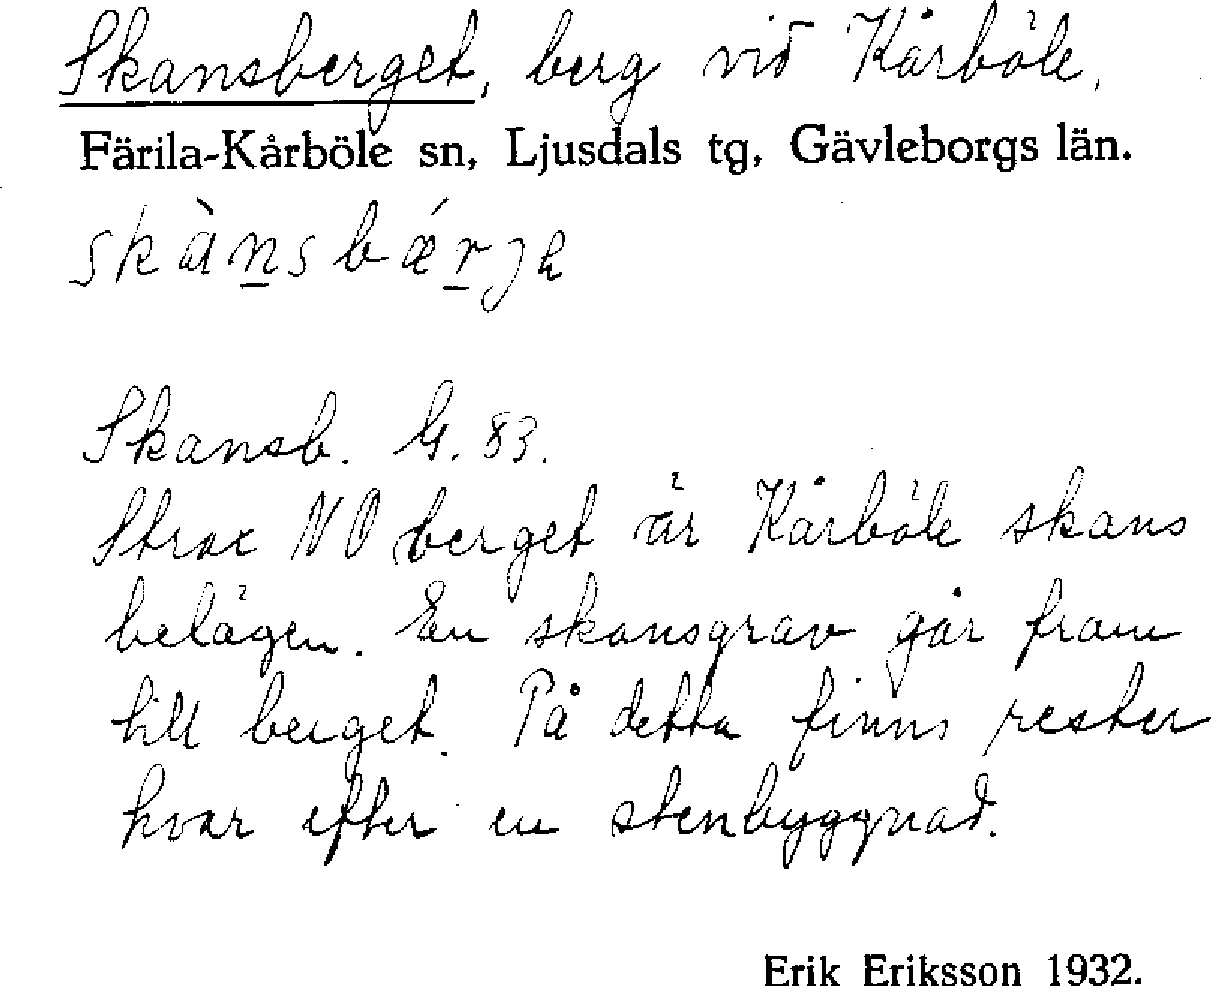 Skansberget, berg vid Kårböle,
Färila-Kårböle sn, Ljusdals tg, Gävleborgs län.
Skansb. G. 83.
Strax NO berget är Kårböle skans
belägen. En skansgrav går fram
till berget. På detta finns rester
kvar efter en stenbyggnad.
Erik Eriksson 1932.